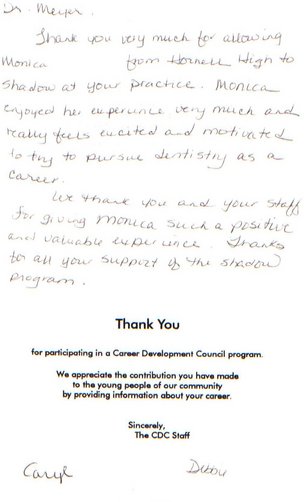 Dr. Meyer,
Thank you very much for allowing
Monica from Hornell High to
shadow at your practice. Monica
enjoyed her experience very much and
really feels excited and motivated
to try to pursue dentistry as a
career.
We thank you and your staff
for giving Monica such a positive
and valuable experience. Thanks
for all your support of the shadow
program.
Thank You
for participating in a Career Development Council program.
We appreciate the contribution you have made
to the young people of our community
by providing information about your career.
Sincerely,
The CDC Staff
Caryl Debbie